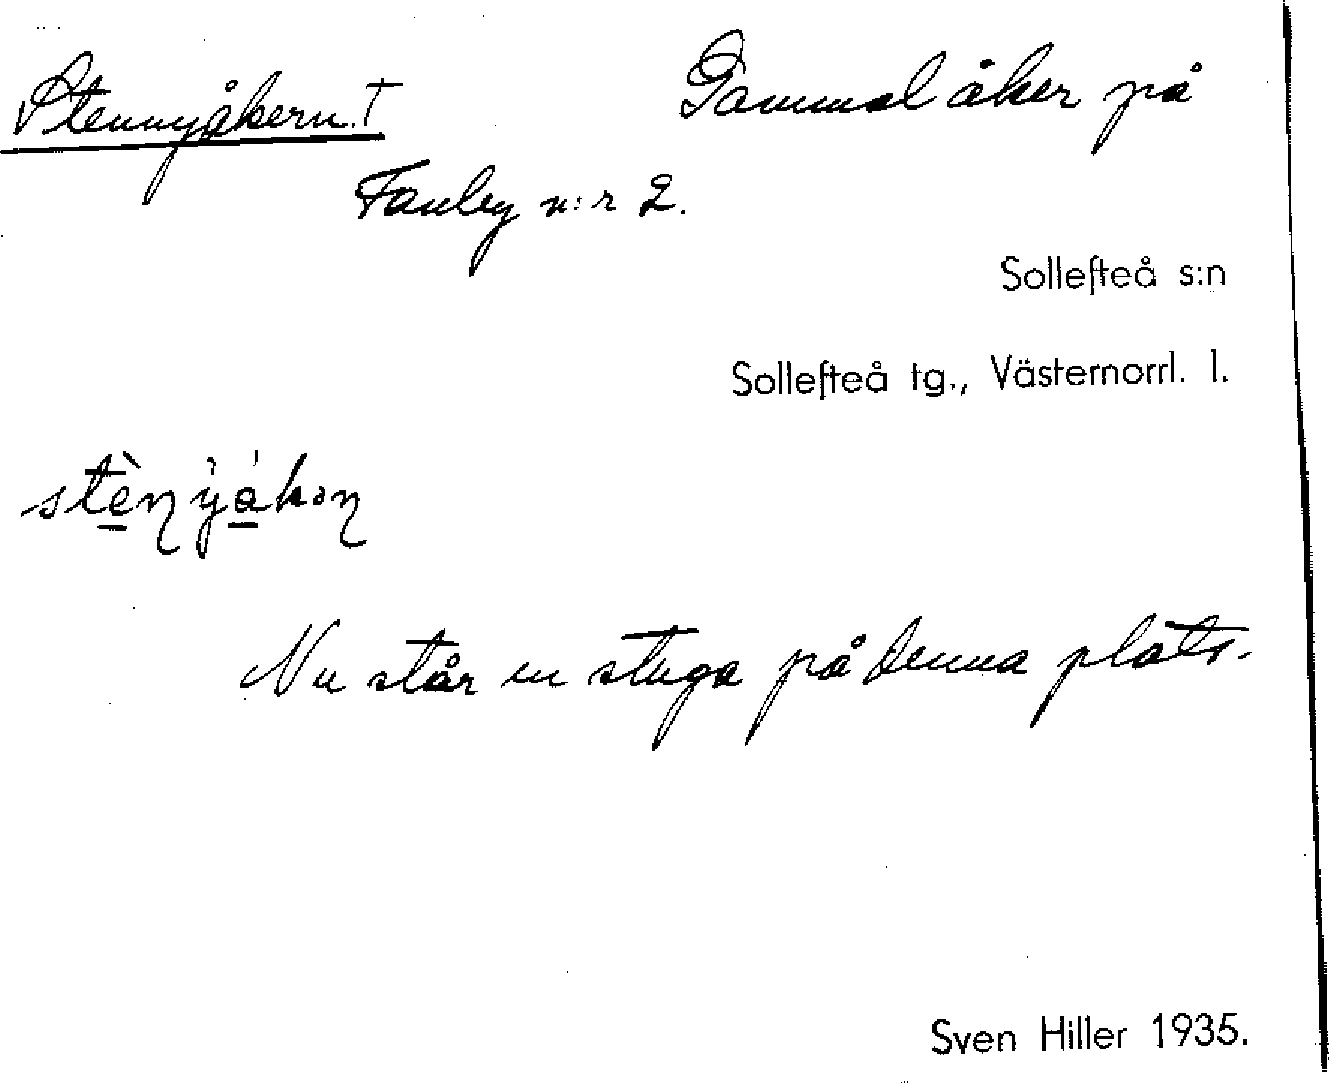 Stennyåkern. † Gammal åker på
Fanby n:r 2.
Sollefteå s:n
Sollefteå tg., Västernorrl. l.
Nu står en stuga på denna plats.
Sven Hiller 1935.